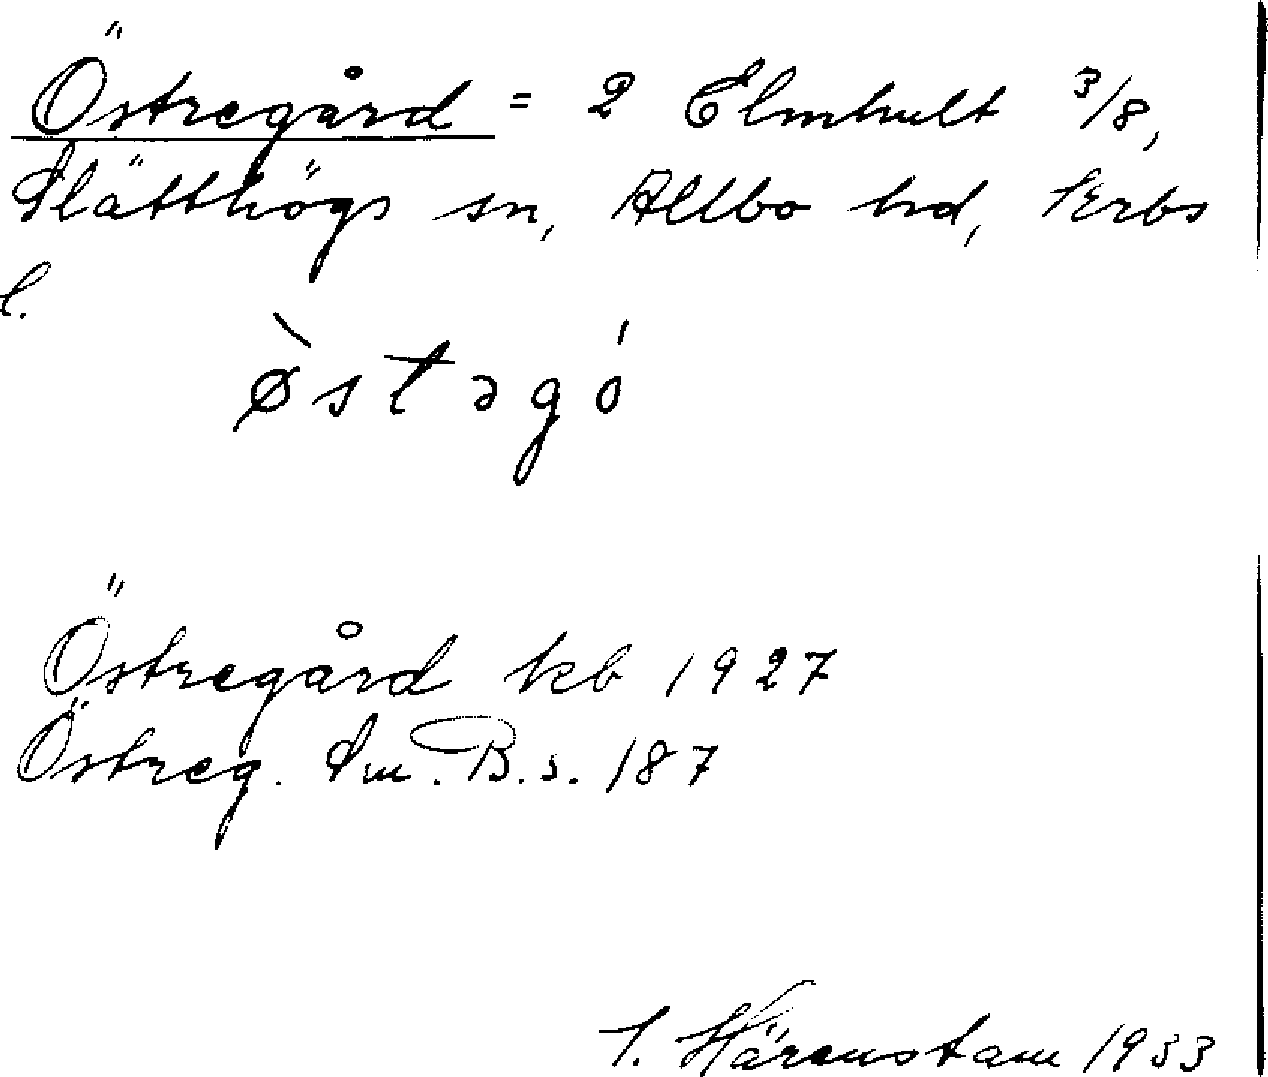 Östregård = 2 Elmhult 3/8,
Slätthögs sn, Allbo hd, Krbs
l.
østəgó
Östregård kb 1927
Östreg. Sm. B. s. 187
I. Härenstam 1933